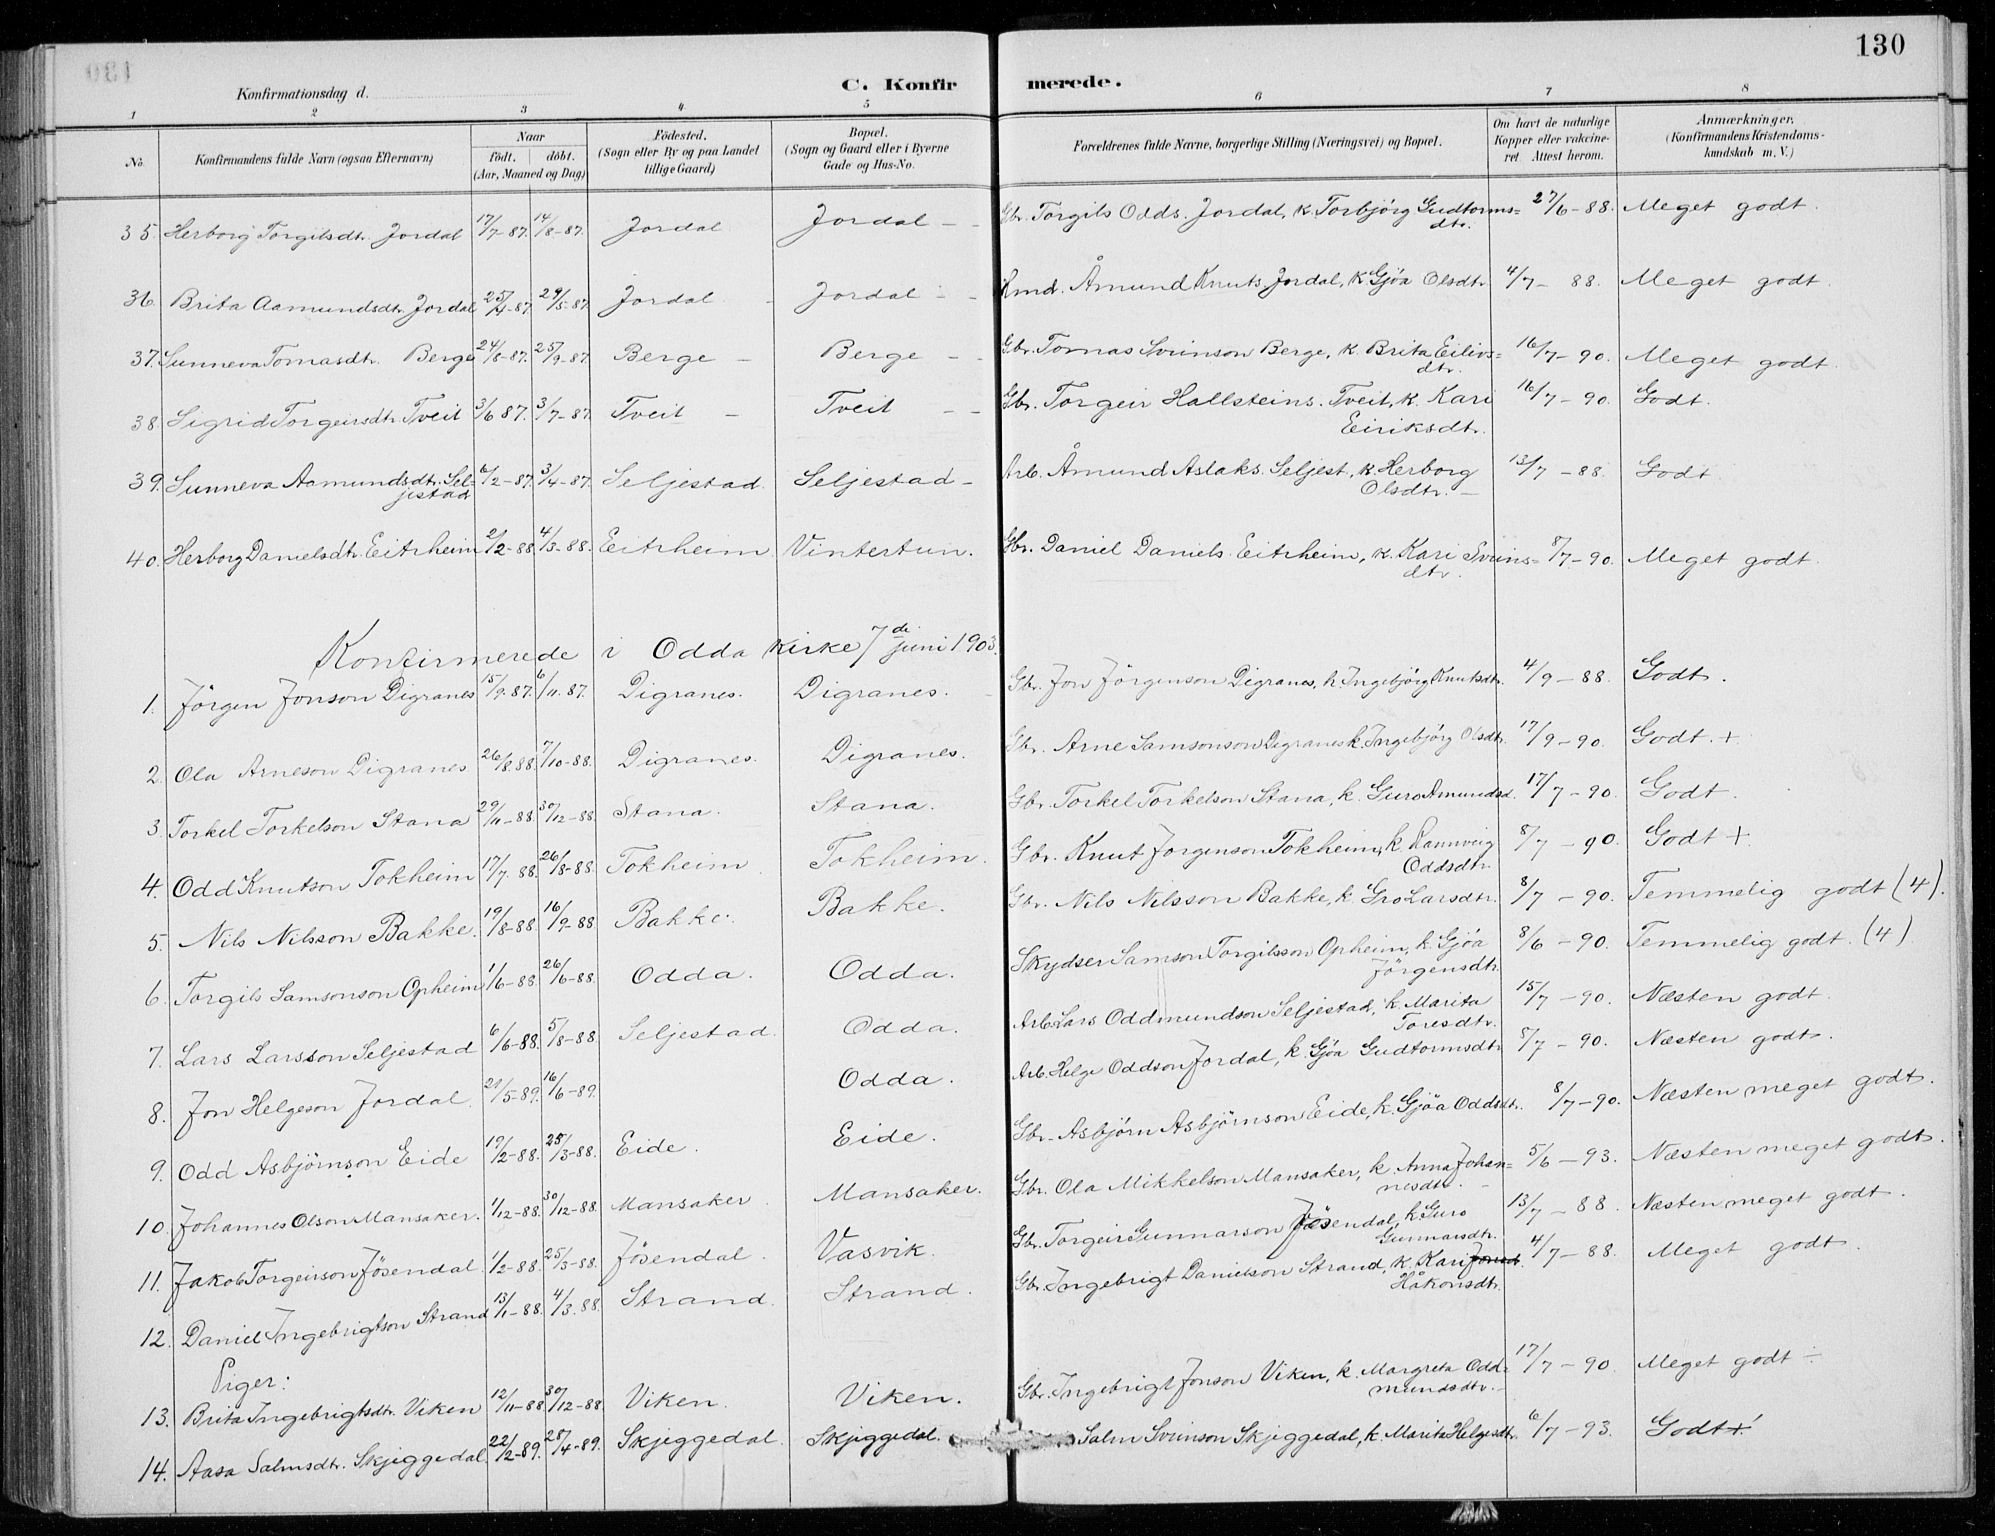 130
Konfirmationsdag d.
C. Konfir
merede.
1 2 3 4 5 6 7 8
No.
Konfirmandens fulde Navn (ogsaa Efternavn)
Naar
födt. döbt.
(Aar, Maaned og Dag)
Födested.
(Sogn eller By og paa Landet
tillige Gaard)
Bopæl.
(Sogn og Gaard eller i Byerne
Gade og Hus-No.
Forældrenes fulde Navne, borgerlige Stilling (Næringsvei) og Bopæl.
Om havt de naturlige
Kopper eller vakcine-
ret. Attest herom.
Anmærkninger.
(Konfirmandens Kristendoms-
kundskab m. V.)
35. Herborg Torgilsdtr. Jordal 17/7-87. 14/8-87. Jordal Jordal - - Gbr. Torgils Odds. Jordal, k. Torbjörg Gudtorms= 27/6-88. Meget godt.
dtr.
36. Brita Aamundsdtr. Jordal 25/4-87. 29/5-87. Jordal - Jordal - - Hmd. Åmund Knuts. Jordal, k. Gjöa Olsdtr. 4/7- 88. Meget godt.
37. Sunneva Tomasdtr. Berge 24/8-87. 25/9-87. Berge - Berge - - Gbr. Tomas Svinson Berge, k. Brita Eilivs= 16/7-90. Meget godt.
dtr.
38. Sigrid Torgeirsdtr. Tveit 3/6 87. 3/7-87. Tveit - Tveit - - Gbr. Torgeir Hallsteins. Tveit, k. Kari 16/7-90. Godt.
Eiriksdtr.
39. Sunneva Aamundsdtr. Sel= 6/2-87. 3/4-87. Seljestad. Seljestad - Arb. Åmund Aslaks. Seljest., k. Herborg 13/7-88. Godt
jestad
Olsdtr. -
40. Herborg Danielsdtr. Eitrheim 2/2-88. 4/3-88. Eitrheim. Vintertun. Gbr. Daniel Daniels. Eitrheim, k. Kari Svins= 8/7-90. Meget godt.
dtr.
Konfirmerede i Odda kirke 7de juni 1903.
1. Jörgen Jonson Digranes 15/9.87. 6/11.87. Digranes. Digranes. - Gbr. Jon Jörgenson Digranes, k. Ingebjörg Knutsdtr. 4/9-88. Godt.
2. Ola Arneson Digranes 26/8.88. 7/10-88. Digranes. Digranes. Gbr. Arne Samsonson Digranes k. Ingebjörg Olsdtr. 17/9-90. Godt +
3. Torkel Torkelson Stana 29/11-88. 30/12-88. Stana. Stana. Gbr. Torkel Torkelson Stana, k. Guro Amundsd. 17/7-90. Godt.
4. Odd Knutson Tokheim 17/7.88. 26/8-88. Tokheim Tokheim. Gbr. Knut Jörgenson Tokheim, k. Rannveig 8/7-90. Godt +
Oddsdtr.
5. Nils Nilsson Bakke. 19/8-88. 16/9-88 Bakke. Bakke. Gbr. Nils Nilsson Bakke, k. Gro Larsdtr. 8/7-90. Temmelig godt (4).
6. Torgils Samsonson Opheim 1/6-88. 26/6-88. Odda. Odda. Skydser Samson Torgilsson Opheim, k. Gjöa 8/6-90. Temmelig godt. (4)
Jörgensdtr.
7. Lars Larsson Seljestad 6/6-88. 5/8-88. Seljestad. Odda. Arb. Lars Oddmundson Seljestad, k. Marita 15/7-90. Næsten godt.
Toresdtr.
8. Jon Helgeson Jordal. 21/5-89. 16/6-89. Odda. Arb. Helge Oddson Jordal, k. Gjöa Gudtormsdtr. 8/7-90. Næsten godt.
9. Odd Asbjörnson Eide 19/2-88. 25/3-88. Eide. Eide. Gbr. Asbjörn Asbjörnson Eide, k. Gjöa Oddsdtr. 8/7-90. Næsten meget godt.
10. Johannes Olson Mansaker. 1/12-88. 30/12-88. Mansaker Mansaker. Gbr. Ola Mikkelson Mansaker, k. Anna Johan= 5/6-93. Næsten meget godt.
nesdtr. -
11. Jakob Torgeirson Jösendal. 1/2-88. 25/3-88. Jösendal. Vasvik. Gbr. Torgeir Gunnarson Jösendal, k. Guro 13/7-88. Næsten meget godt.
Gunnarsdtr.
12. Daniel Ingebrigtson Strand 13/1-88. 4/3.88. Strand. Strand. Gbr. Ingebrigt Danielson Strand, k. Kari 4/7-88. Meget godt.
Håkonsdtr.
Piger:
13. Brita Ingebrigtsdtr. Viken 12/11-88 30/12-88. Viken. Viken. Gbr. Ingebrigt Jonson Viken, k. Margreta Odd= 17/7-90. Meget godt ÷
mundsdtr. -
14. Aasa Salmsdtr. Skjeggedal. 22/2-89. 28/4-89. Skjeggedal. Skjeggedal. Salm Svinson Skjeggedal, k. Marita Helgesdtr. 6/7-93. Godt +